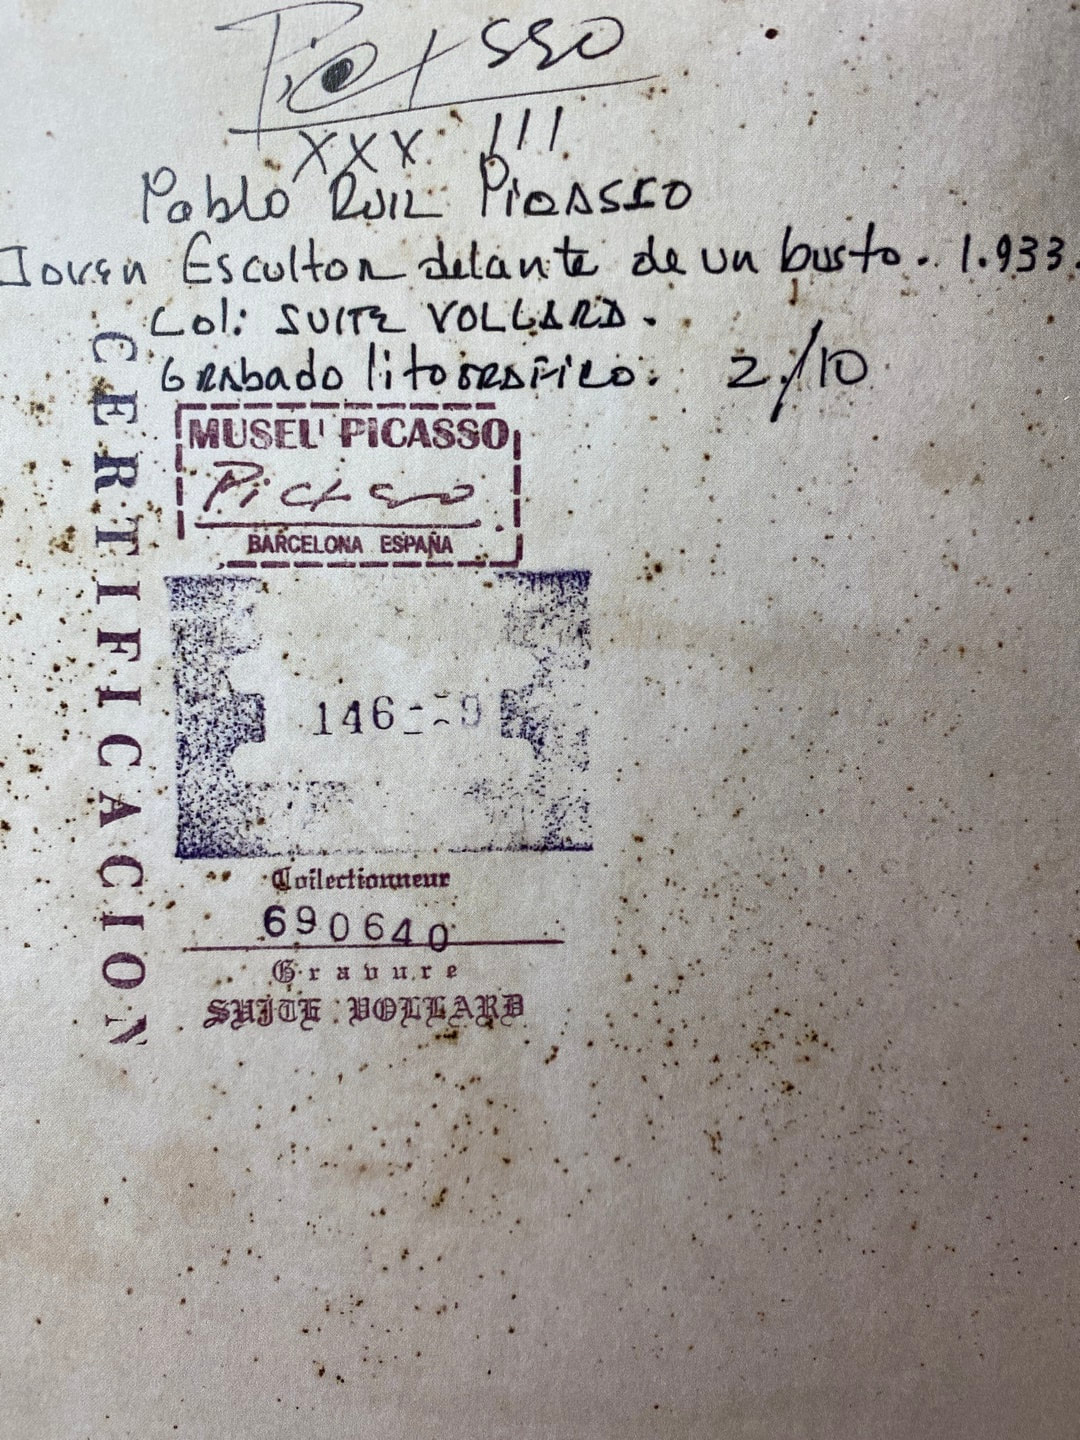 Picasso
XXX III
Pablo RUIZ PICASSO
Joven Escultor delante de un busto. 1.933.
Col: SUITE VOLLARD.
Grabado litografico. 2/10
CERTIFICACION
MUSEU PICASSO
Picasso
BARCELONA ESPAÑA
146
Collectionneur
690640
Gravure
SUITE VOLLARD